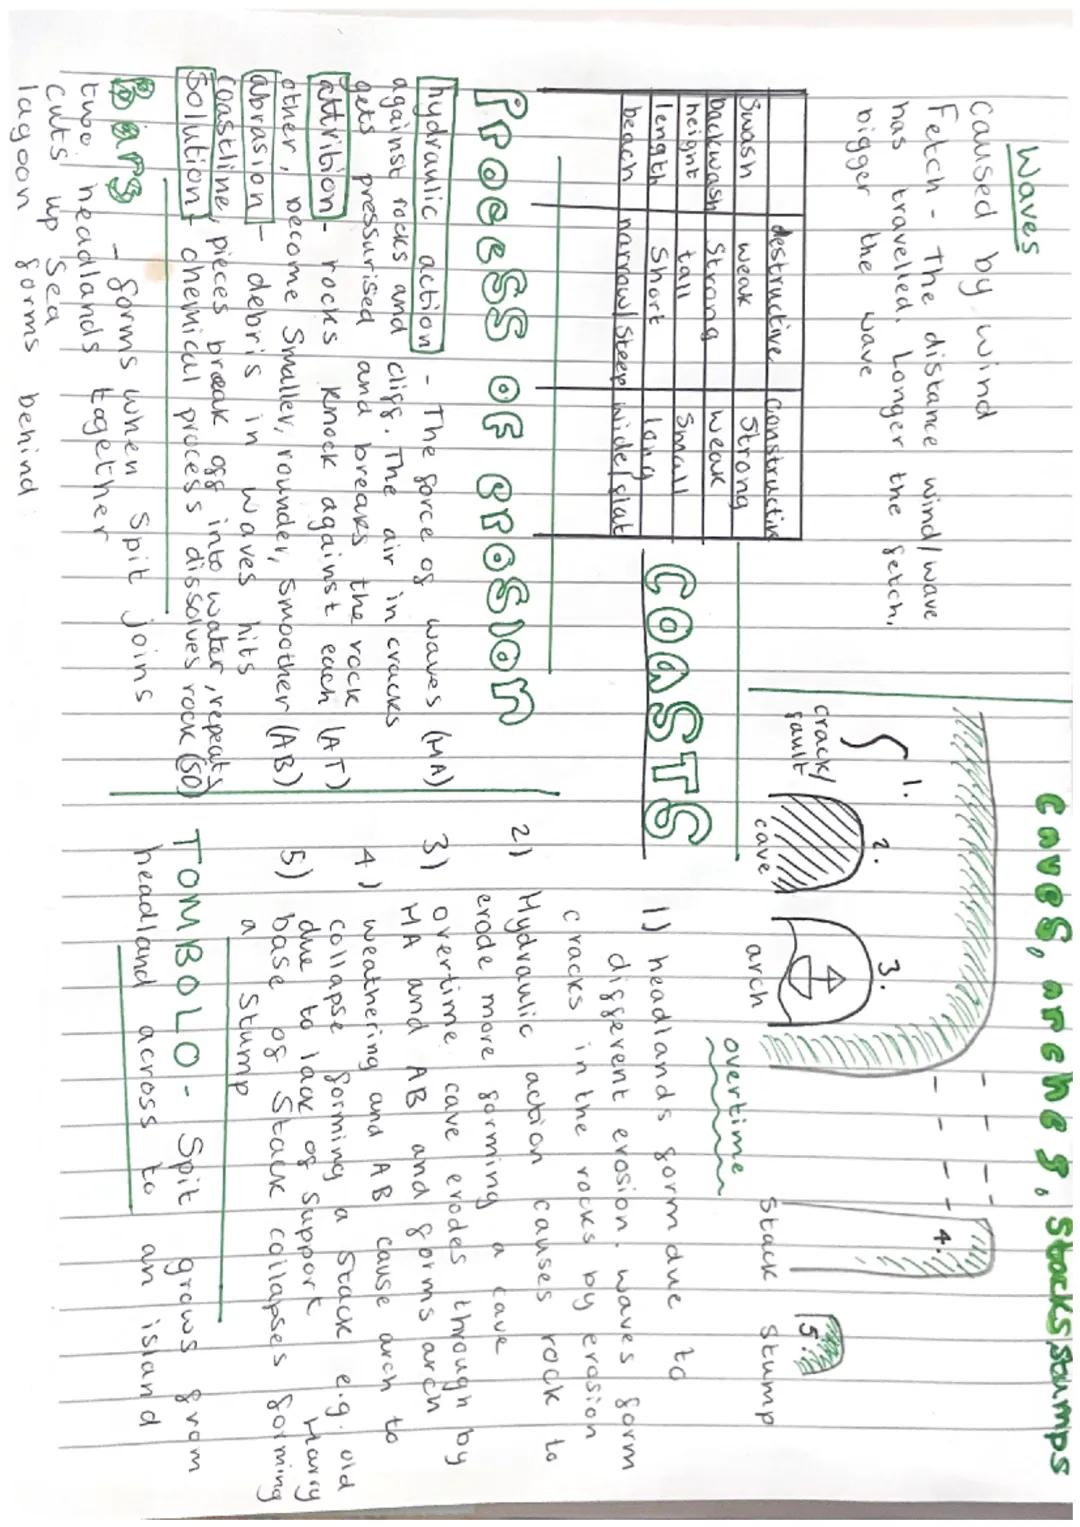 Waves
caused by wind
Fetch - The distance wind/wave
has travelled. Longer the fetch,
bigger the wave
destructive constructive
Swash weak Strong
backwash Strong weak
height tall Small
length Short long
beach narrow/Steep wide/flat
COASTS
Process of erosion
hydraulic action - The force of waves (HA)
against rocks and cliff. The air in cracks
gets pressurised and breaks the rock
attribion - rocks knock against each (AT)
other, become Smaller, rounder, Smoother (AB)
abrasion - debris in waves hits
coastline, pieces break off into water, repeats
Solution - chemical process dissolves rock (SO)
Bars - forms when Spit joins
two headlands together
cuts up sea
lagoon forms behind
Caves, arches, Stacks, Stumps
1.
crack/
fault
2.
cave
3.
arch
overtime
4.
Stack
5.
Stump
1) headlands form due to
different erosion. waves form
cracks in the rocks by erosion
2) Hydraulic action causes rock to
erode more forming a cave
3) overtime cave erodes through by
HA and AB and forms arch
4) weathering and AB cause arch to
collapse forming a Stack e.g. old Harry
5) due to lack of support
base of Stack collapses forming
a Stump
TOMBOLO - Spit grows from
headland across to an island